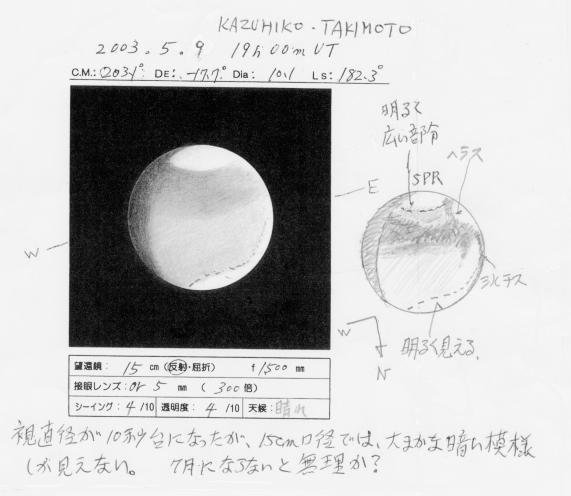 KAZUHIKO・TAKIMOTO
2003.5.9 19h00m UT
C.M.: 203.1° DE: -17.7° Dia: 10.1 Ls: 182.3°
明るく
広い部分
ヘラス
SPR
E
W
ミルチス
W
明るく見える。
N
望遠鏡: 15 cm (反射・屈折) f 1500 mm
接眼レンズ: Or 5 mm ( 300 倍)
シーイング: 4 /10 透明度: 4 /10 天候: 晴れ
視直径が10秒台になったが、15cm口径では、大まかな暗い模様
しか見えない。 7月にならないと無理か?